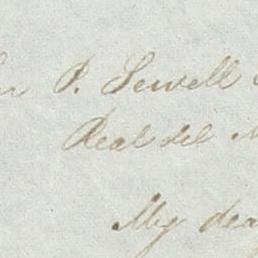 P. Sewell
Real del M
My dea